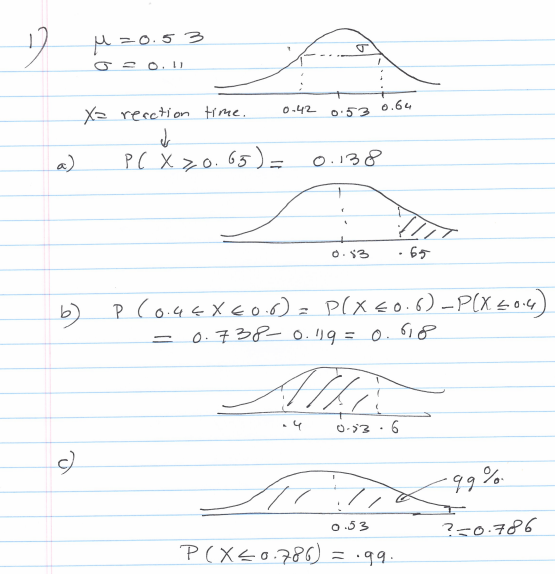 1) μ = 0.53
σ = 0.11
σ
X = reaction time.
0.42 0.53 0.64
a) P(X ≥ 0.65) = 0.138
0.53 .65
b) P(0.4 ≤ X ≤ 0.6) = P(X ≤ 0.6) - P(X ≤ 0.4)
= 0.738 - 0.119 = 0.618
.4 0.53 .6
c)
99%
0.53 ? = 0.786
P(X ≤ 0.786) = .99.